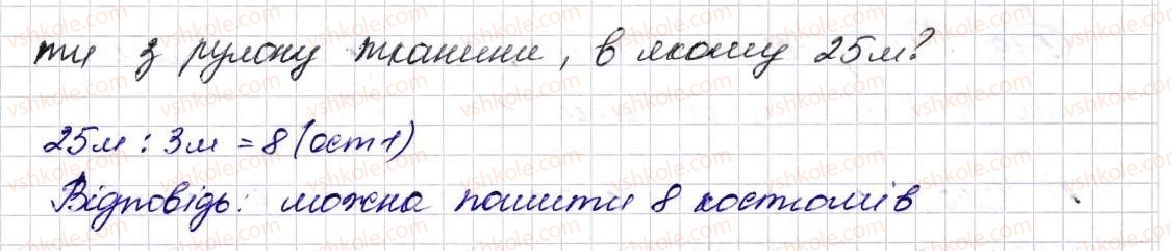 ти з рулону тканини, в якому 25м?
25м : 3м = 8 (ост 1)
Відповідь: можна пошити 8 костюмів